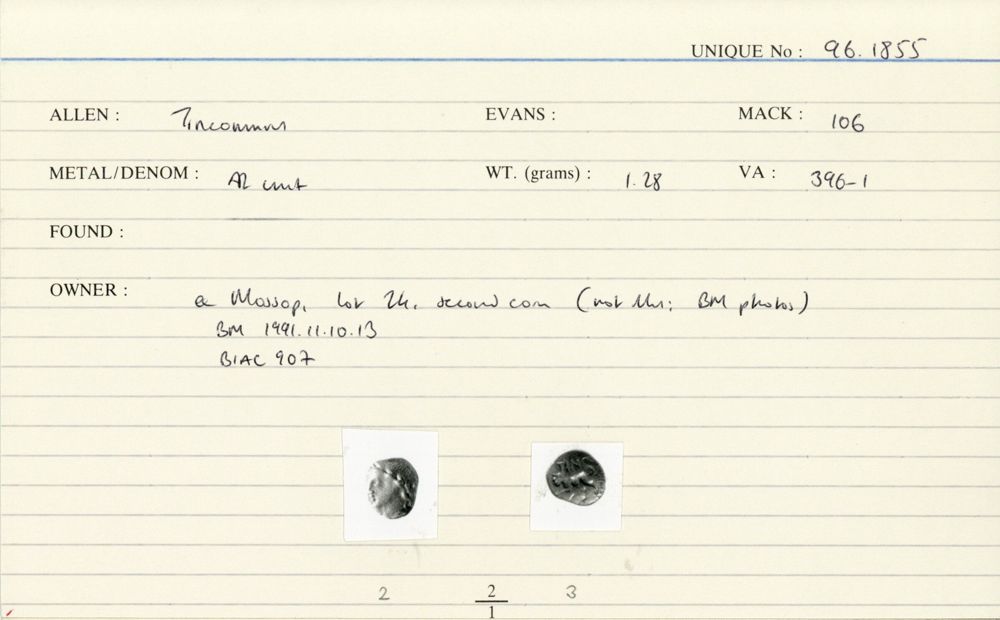 UNIQUE No : 96.1855
ALLEN : Tincommius EVANS : MACK : 106
METAL/DENOM : AR unit WT. (grams) : 1.28 VA : 396-1
FOUND :
OWNER : ex Mossop, lot 24, second coin (not illus; BM photos)
BM 1991.11.10.13
BIAC 907
TINC
2 2 3
1